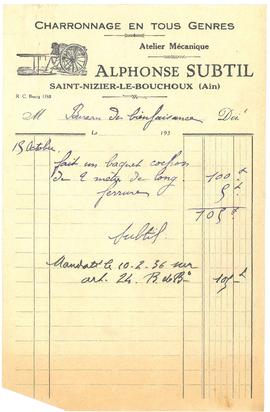 CHARRONNAGE EN TOUS GENRES
Atelier Mécanique
ALPHONSE SUBTIL
SAINT-NIZIER-LE-BOUCHOUX (Ain)
R. C. Bourg
M Bureau de bienfaisance Doit
Le 193
15 Octobre
fait un baquet cochon
de 2 meter de long. 100
ferrure 5
105
Subtil
Mandaté le 10-2-36 sur
art. 24 B. de B 105